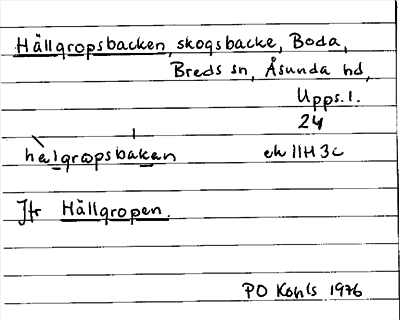 Hällgropsbacken, skogsbacke, Boda,
Breds sn, Åsunda hd,
Upps. l.
24
hèlgrɷpsbákan ek 11H 3c
Jfr Hällgropen.
PO Kohls 1976